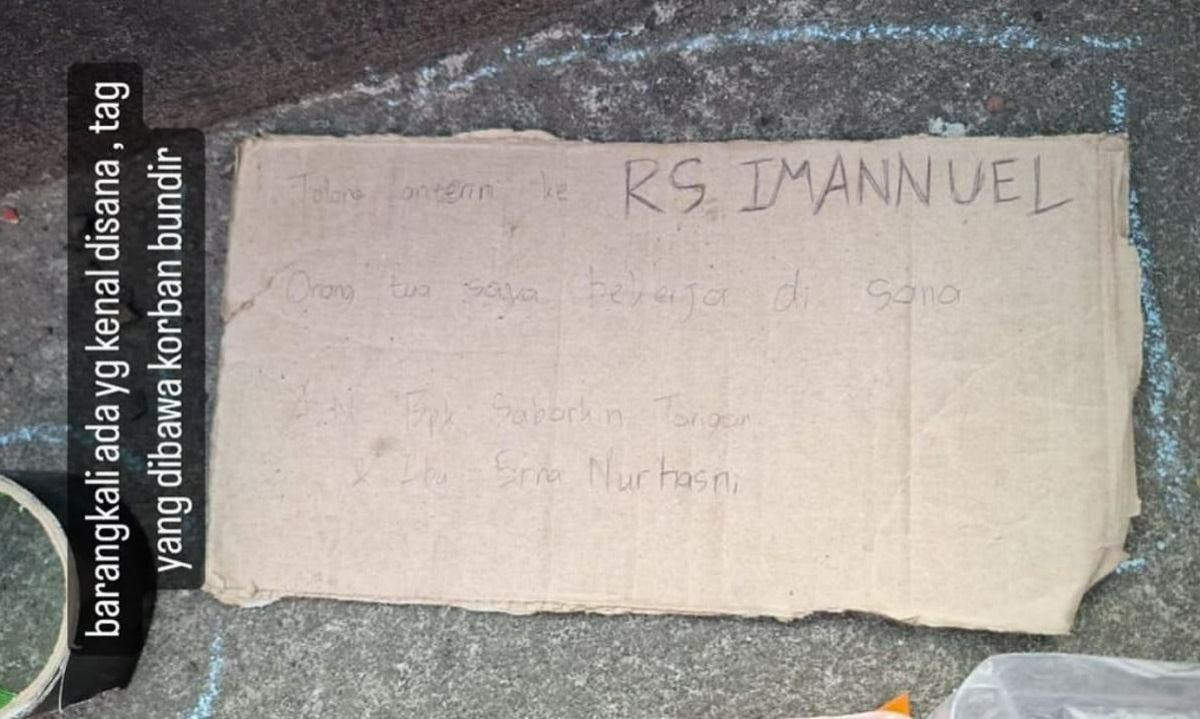 barangkali ada yg kenal disana , tag
yang dibawa korban bundir
Tolong anterin ke RS IMANNUEL
Orang tua saya bekerja di sana
Bpk Sabarkin Tarigan
& Ibu Erna Nurhasni